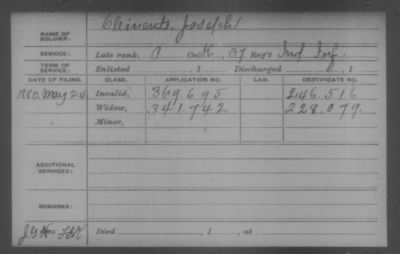 NAME OF SOLDIER: Clements, Joseph
SERVICE: Late rank, P Co. K, 37 Reg't Ind Inf
TERM OF SERVICE: Enlisted , 1 Discharged , 1
DATE OF FILING. CLASS. APPLICATION NO. LAW. CERTIFICATE NO.
1880. May 24 Invalid, 369.695 246.516
Widow, 341.742 228.079
Minor,
ADDITIONAL SERVICES:
REMARKS:
Died , 1 , at